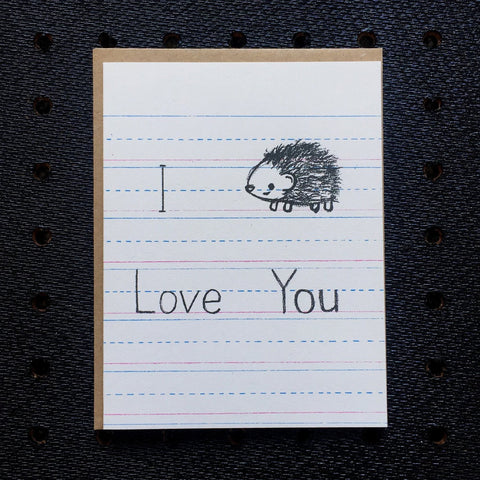 I
Love You